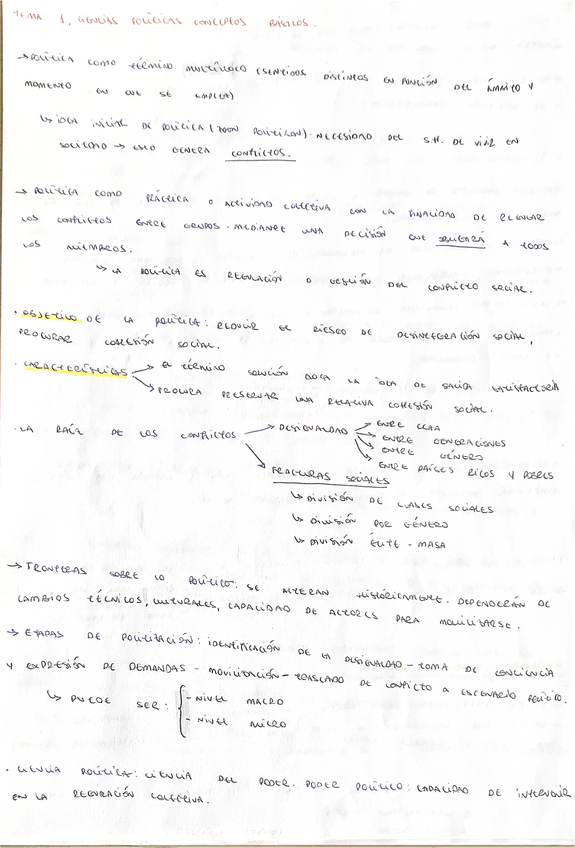 TEMA 1, CIENCIAS POLÍTICAS CONCEPTOS BÁSICOS.
→ POLÍTICA COMO TÉRMINO MULTÍVOCO (SENTIDOS DISTINTOS EN FUNCIÓN DEL ÁMBITO Y
MOMENTO EN QUE SE EMPLEA)
↳ IDEA INICIAL DE POLÍTICA (ZOON POLITIKON): NECESIDAD DEL S.H. DE VIVIR EN
SOCIEDAD → ESTO GENERA CONFLICTOS.
→ POLÍTICA COMO PRÁCTICA O ACTIVIDAD COLECTIVA CON LA FINALIDAD DE REGULAR
LOS CONFLICTOS ENTRE GRUPOS. MEDIANTE UNA DECISIÓN QUE OBLIGARÁ A TODOS
LOS MIEMBROS.
↳ LA POLÍTICA ES REGULACIÓN O GESTIÓN DEL CONFLICTO SOCIAL.
· OBJETIVO DE LA POLÍTICA: REDUCIR EL RIESGO DE DESINTEGRACIÓN SOCIAL,
PROCURAR COHESIÓN SOCIAL.
· CARACTERÍSTICAS → EL TÉRMINO SOLUCIÓN EVOCA LA IDEA DE SALIDA SATISFACTORIA
→ PROCURA PRESERVAR UNA RELATIVA COHESIÓN SOCIAL.
· LA RAÍZ DE LOS CONFLICTOS → DESIGUALDAD → ENTRE CCAA
→ ENTRE GENERACIONES
→ ENTRE GÉNERO
→ ENTRE PAÍSES RICOS Y POBRES
→ FRACTURAS SOCIALES
↳ DIVISIÓN DE CLASES SOCIALES
↳ DIVISIÓN POR GÉNERO
↳ DIVISIÓN ÉLITE - MASA
→ FRONTERAS SOBRE LO POLÍTICO: SE ALTERAN HISTÓRICAMENTE. DEPENDERÁN DE
CAMBIOS TÉCNICOS, CULTURALES, CAPACIDAD DE ACTORES PARA MOVILIZARSE.
→ ETAPAS DE POLITIZACIÓN: IDENTIFICACIÓN DE LA DESIGUALDAD - TOMA DE CONCIENCIA
Y EXPRESIÓN DE DEMANDAS - MOVILIZACIÓN - TRASLADO DE CONFLICTO A ESCENARIO POLÍTICO.
↳ PUEDE SER: - NIVEL MACRO
- NIVEL MICRO
· CIENCIA POLÍTICA: CIENCIA DEL PODER. PODER POLÍTICO: CAPACIDAD DE INTERVENIR
EN LA REGULACIÓN COLECTIVA.